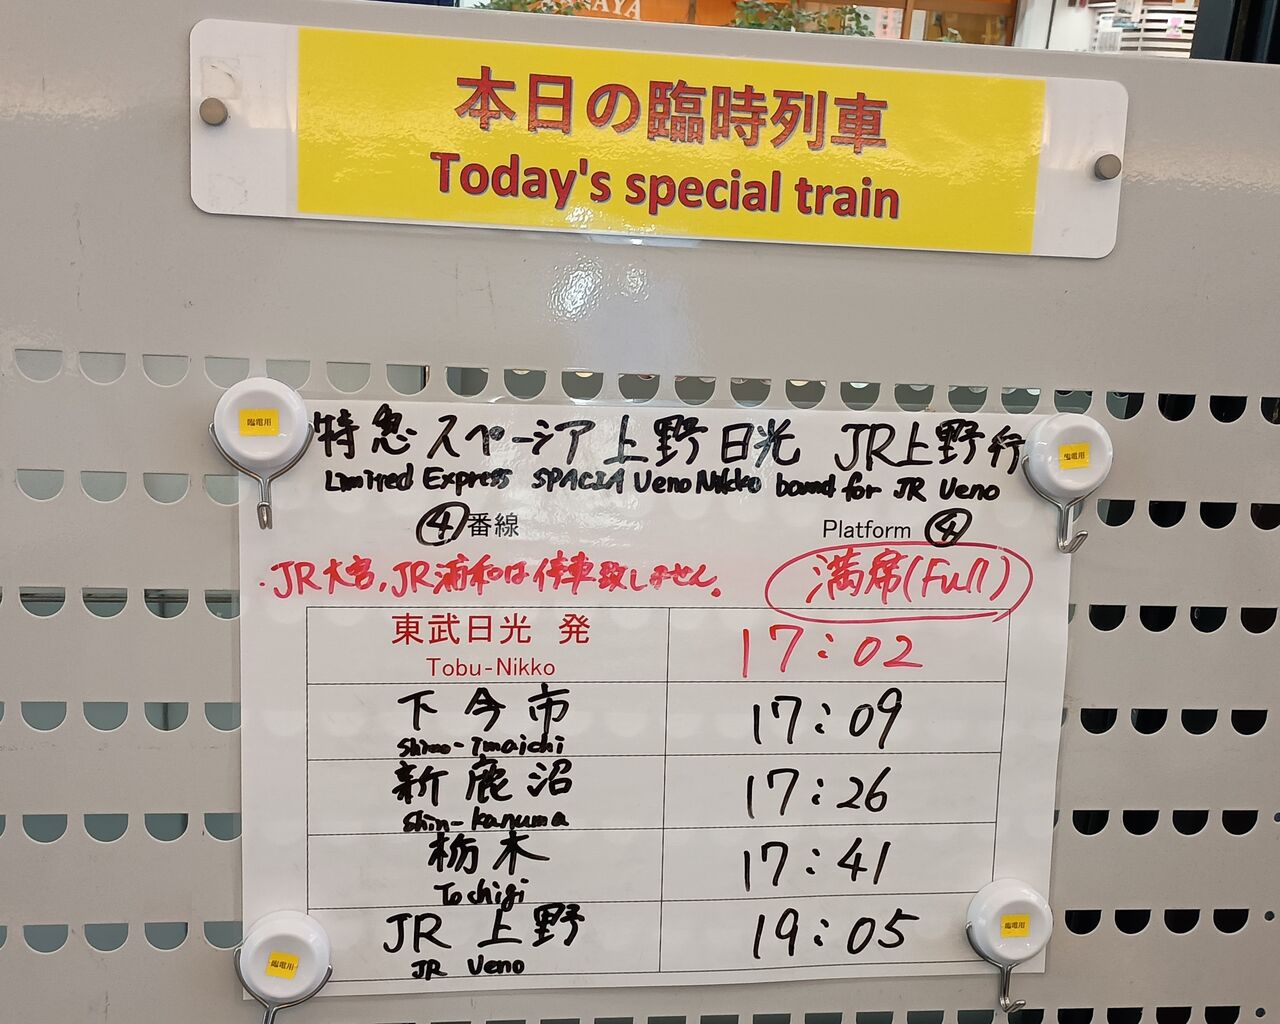 本日の臨時列車
Today's special train
特急スペーシア上野日光 JR上野行
Limited Express SPACIA Ueno Nikko bound for JR Ueno
④番線 Platform ④
・JR大宮、JR浦和は停車致しません。 満席(Full)
東武日光 発 17:02
Tobu-Nikko
下今市 17:09
Shimo-Imaichi
新鹿沼 17:26
Shin-Kanuma
栃木 17:41
Tochigi
JR 上野 19:05
JR Ueno
臨電用
臨電用
臨電用
臨電用